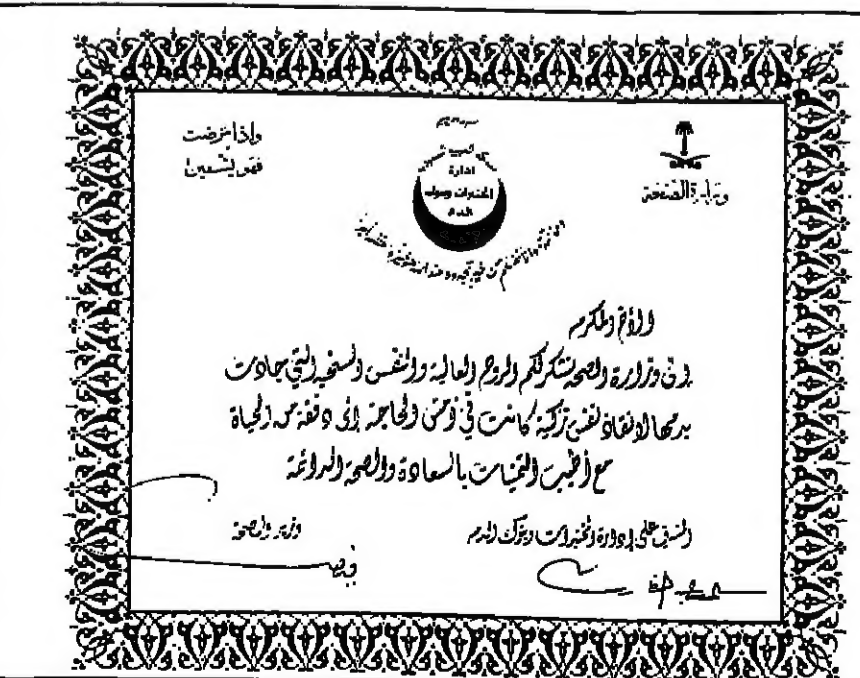 وزارة الصحة
وإذا مرضت
فهو يشفين
ادارة
المختبرات وبنوك
الدم
الأخ المكرم
إن وزارة الصحة تشكر لكم الروح العالية والنفس السخية التي جادت
بدمها لانقاذ نفس زكية كانت في أمس الحاجة إلى دفقة من الحياة
مع أطيب التمنيات بالسعادة والصحة الدائمة
المشرف على إدارة المختبرات وبنوك الدم
وزير الصحة